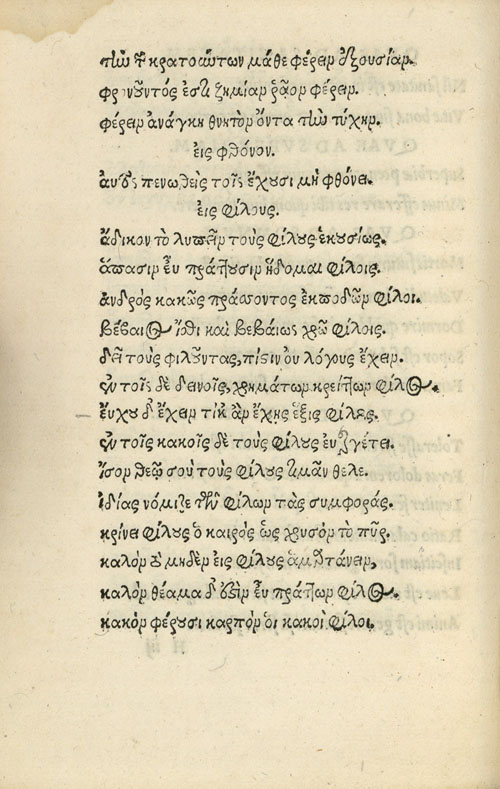 τὴν τῶν κρατούντων μάθε φέρειν ἐξουσίαν.
φρονοῦντός ἐστι ζημίαν ῥᾷον φέρειν.
φέρειν ἀνάγκη θνητὸν ὄντα τὴν τύχην.
εἰς φθόνον.
αὐτὸς πενωθεὶς τοῖς ἔχουσι μὴ φθόνει.
εἰς φίλους.
ἄδικον τὸ λυπεῖν τοὺς φίλους ἑκουσίως.
ἅπασιν εὖ πράττουσιν ἥδομαι φίλοις.
ἀνδρὸς κακῶς πράσσοντος ἐκποδὼν φίλοι.
βέβαιος ἴσθι καὶ βεβαίως χρῶ φίλοις.
δεῖ τοὺς φιλοῦντας, πίστιν οὐ λόγους ἔχειν.
ἐν τοῖς δὲ δεινοῖς, χρημάτων κρείττων φίλος.
εὔχου δ' ἔχειν τι κἂν ἔχης ἕξεις φίλους.
ἐν τοῖς κακοῖς δὲ τοὺς φίλους εὐεργέτει.
ἴσον θεῷ σοὺ τοὺς φίλους τιμᾶν θέλε.
ἰδίας νόμιζε τῶν φίλων τὰς συμφοράς.
κρίνει φίλους ὁ καιρὸς ὡς χρυσὸν τὸ πῦρ.
καλὸν τὸ μηδὲν εἰς φίλους ἁμαρτάνειν,
καλὸν θέαμα δ' ἐστὶν εὖ πράττων φίλος.
κακὸν φέρουσι καρπὸν οἱ κακοὶ φίλοι.